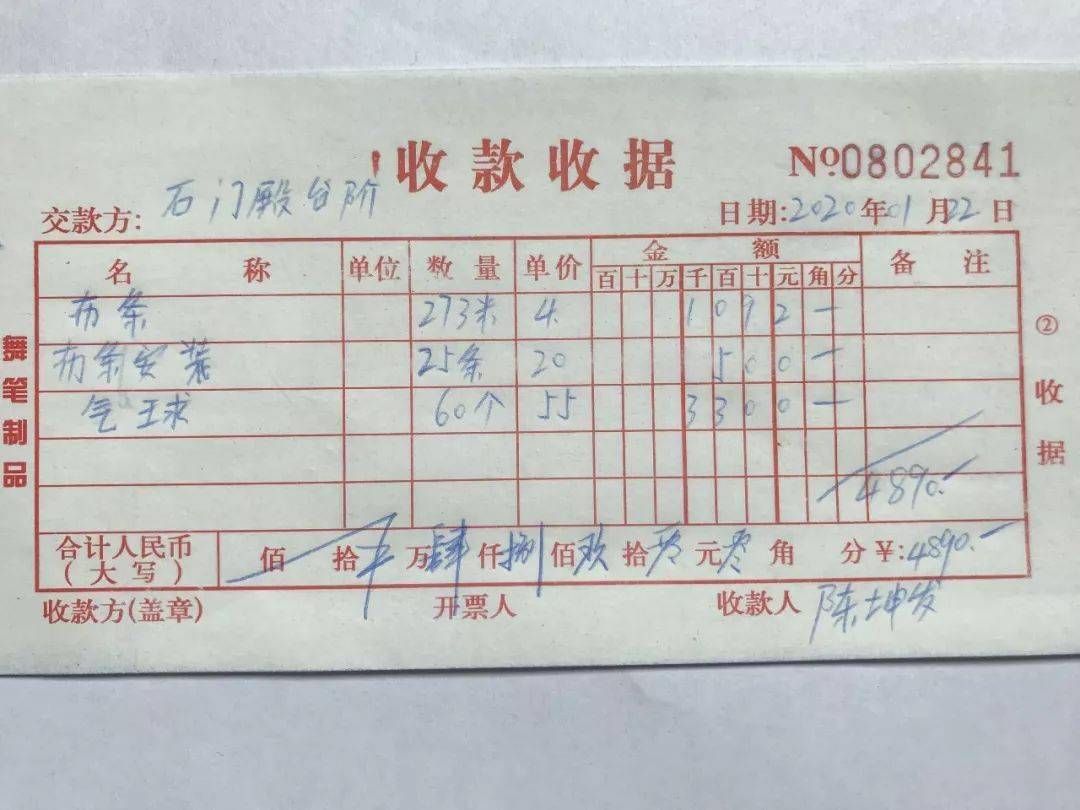 收款收据 №0802841
交款方: 石门殿台阶 日期:2020年01月22日
名称 单位 数量 单价 金额 备注
百 十 万 千 百 十 元 角 分
布条 273米 4. 1 0 9 2 一
布条安装 25条 20 5 0 0 一
气球 60个 55 3 3 0 0 一
4890.
合计人民币(大写) 佰 拾 万肆仟捌佰玖拾零元零角 分 ¥:4890.-
收款方(盖章) 开票人 收款人 陈坤发
舞笔制品
②收据